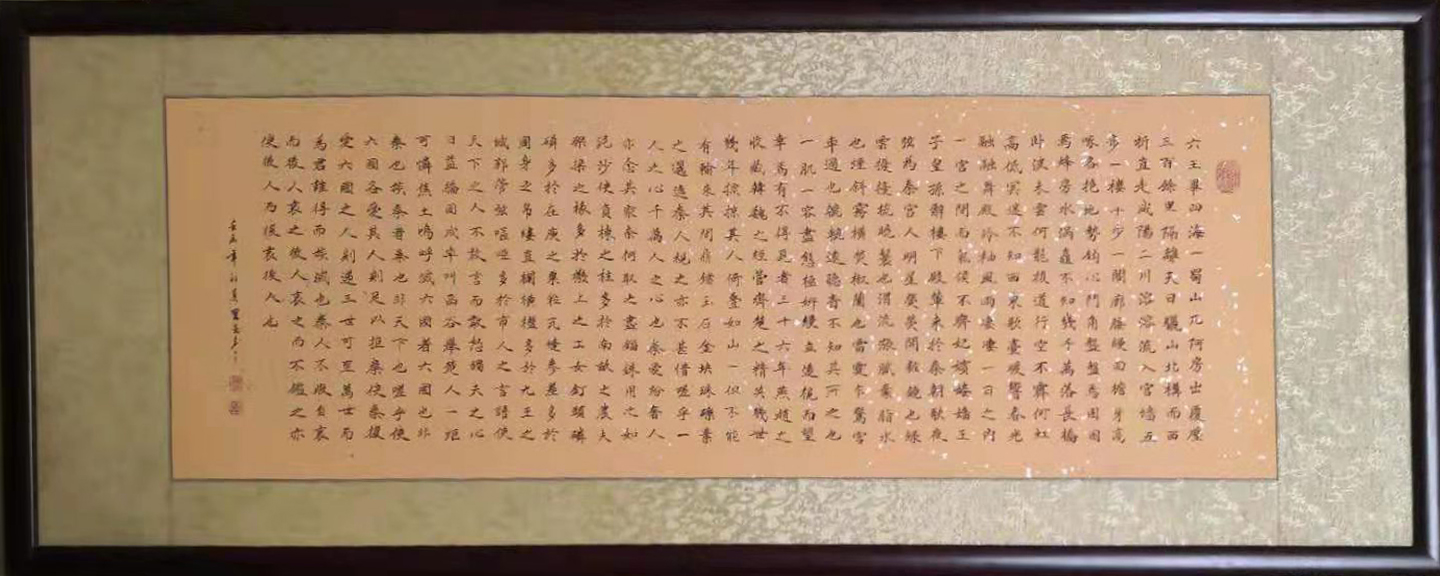 六王畢四海一蜀山兀阿房出覆壓
三百餘里隔離天日驪山北構而西
折直走咸陽二川溶溶流入宮墻五
步一樓十步一閣廊腰縵回檐牙高
啄各抱地勢鉤心鬥角盤盤焉囷囷
焉蜂房水渦矗不知幾千萬落長橋
臥波未雲何龍複道行空不霽何虹
高低冥迷不知西東歌臺暖響春光
融融舞殿冷袖風雨凄凄一日之內
一宮之間而氣候不齊妃嬪媵嬙王
子皇孫辭樓下殿輦來於秦朝歌夜
弦為秦宮人明星熒熒開妝鏡也綠
雲擾擾梳曉鬟也渭流漲膩棄脂水
也煙斜霧橫焚椒蘭也雷霆乍驚宮
車過也轆轆遠聽杳不知其所之也
一肌一容盡態極妍縵立遠視而望
幸焉有不得見者三十六年燕趙之
收藏韓魏之經營齊楚之精英幾世
幾年摽掠其人倚疊如山一但不能
有輸來其間鼎鐺玉石金塊珠礫棄
之邐迤秦人視之亦不甚惜嗟乎一
人之心千萬人之心也秦愛紛奢人
亦念其家奈何取之盡錙銖用之如
泥沙使負棟之柱多於南畝之農夫
架梁之椽多於機上之工女釘頭磷
磷多於在庾之粟粒瓦縫參差多於
周身之帛縷直欄橫檻多於九土之
城郭管弦嘔啞多於市人之言語使
天下之人不敢言而敢怒獨夫之心
日益驕固戍卒叫函谷舉楚人一炬
可憐焦土嗚呼滅六國者六國也非
秦也族秦者秦也非天下也嗟乎使
六國各愛其人則足以拒秦使秦複
愛六國之人則遞三世可至萬世而
為君誰得而族滅也秦人不暇自哀
而後人哀之後人哀之而不鑑之亦
使後人而復哀後人也